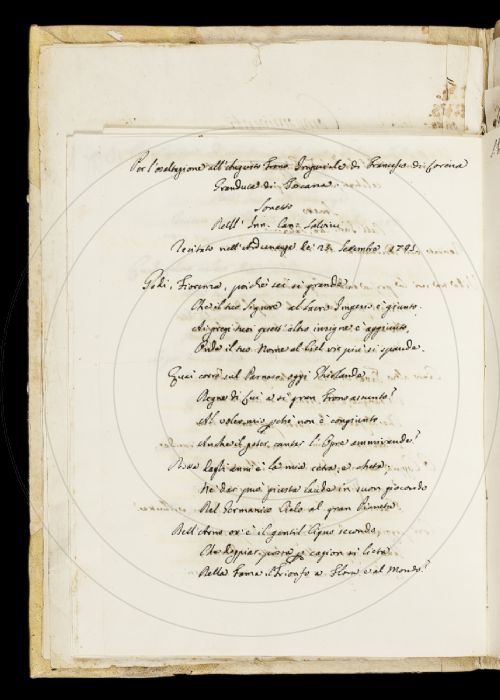 Per l'esaltazione all'Augusto Trono Imperiale di Francesco di Lorena
Granduca di Toscana
Sonetto
Dell' Canc Salvini
Recitato nell'Adunanza le Settembre
Godi, Fiorenza, poichè sei sì grande
Che il tuo Signore al Sacro Imperio è giunto.
Ai pregi tuoi quest' altro insigne è aggiunto,
Onde il tuo Nome al Ciel vie più si spande.
Quai corrò sul Parnaso oggi Ghirlande
Degne di Lui a sì gran Trono assunto?
Al voler mio perchè non è congiunto
Anche il poter cantar l'Opre ammirande?
lagli anni è la mia cetra, e cheta,
Ne dar può questa laude in suon giocondo
Del Germanico Cielo al gran Pianeta
Dell'Arno ov'è il gentil Cigno secondo,
Che doppiar possa cagion sì lieta
Della Fama il Trionfo a Flora e al Mondo?